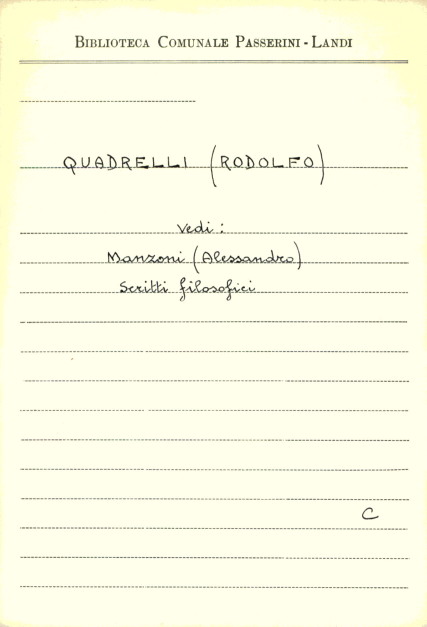 BIBLIOTECA COMUNALE PASSERINI - LANDI
QUADRELLI (RODOLFO)
Vedi :
Manzoni (Alessandro)
Scritti filosofici
C